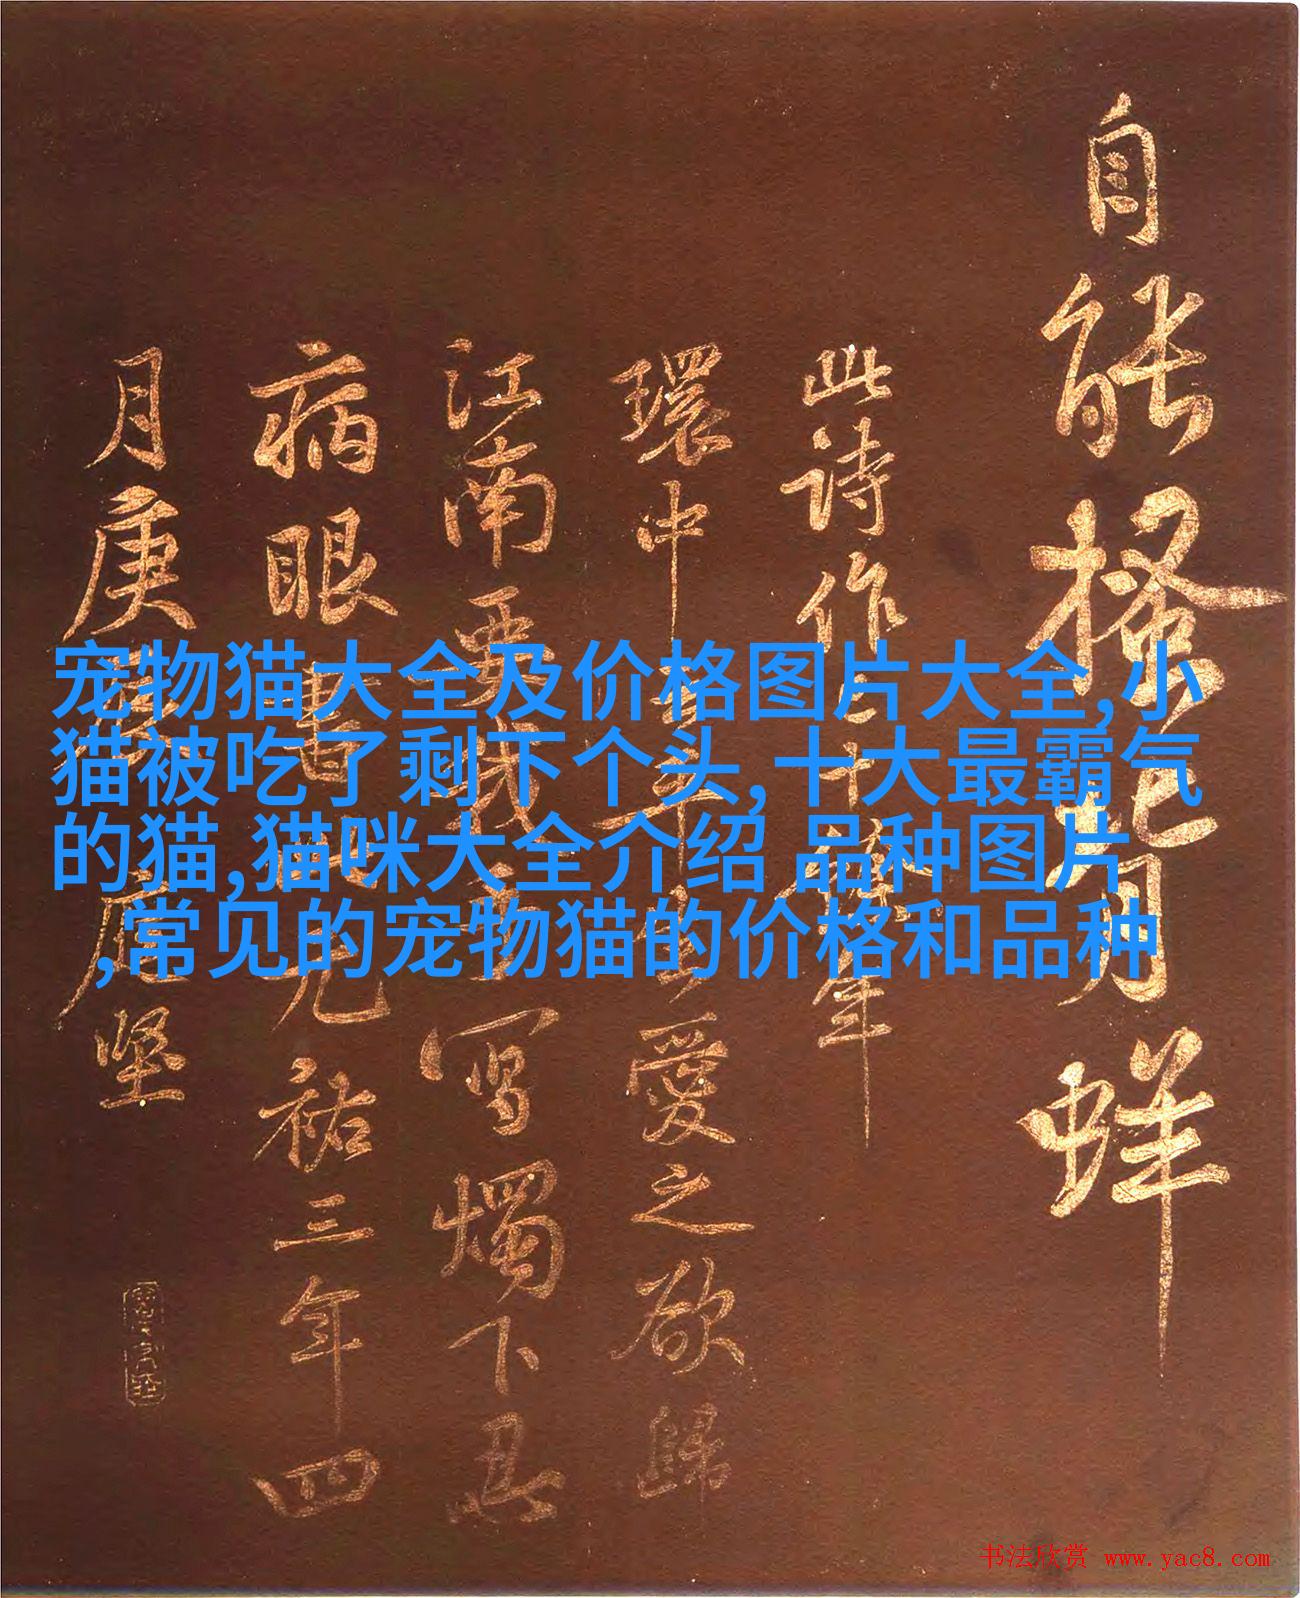 宠物猫大全及价格图片大全,小
猫被吃了剩下个头,十大最霸气
的猫,猫咪大全介绍 品种图片
,常见的宠物猫的价格和品种
自能搔背蛘
此詩作十餘年
環中愛之欲歸
江南要我寫燭下忍
病眼書元祐三年四
月庚庭堅
书法欣赏 www.yac8.com